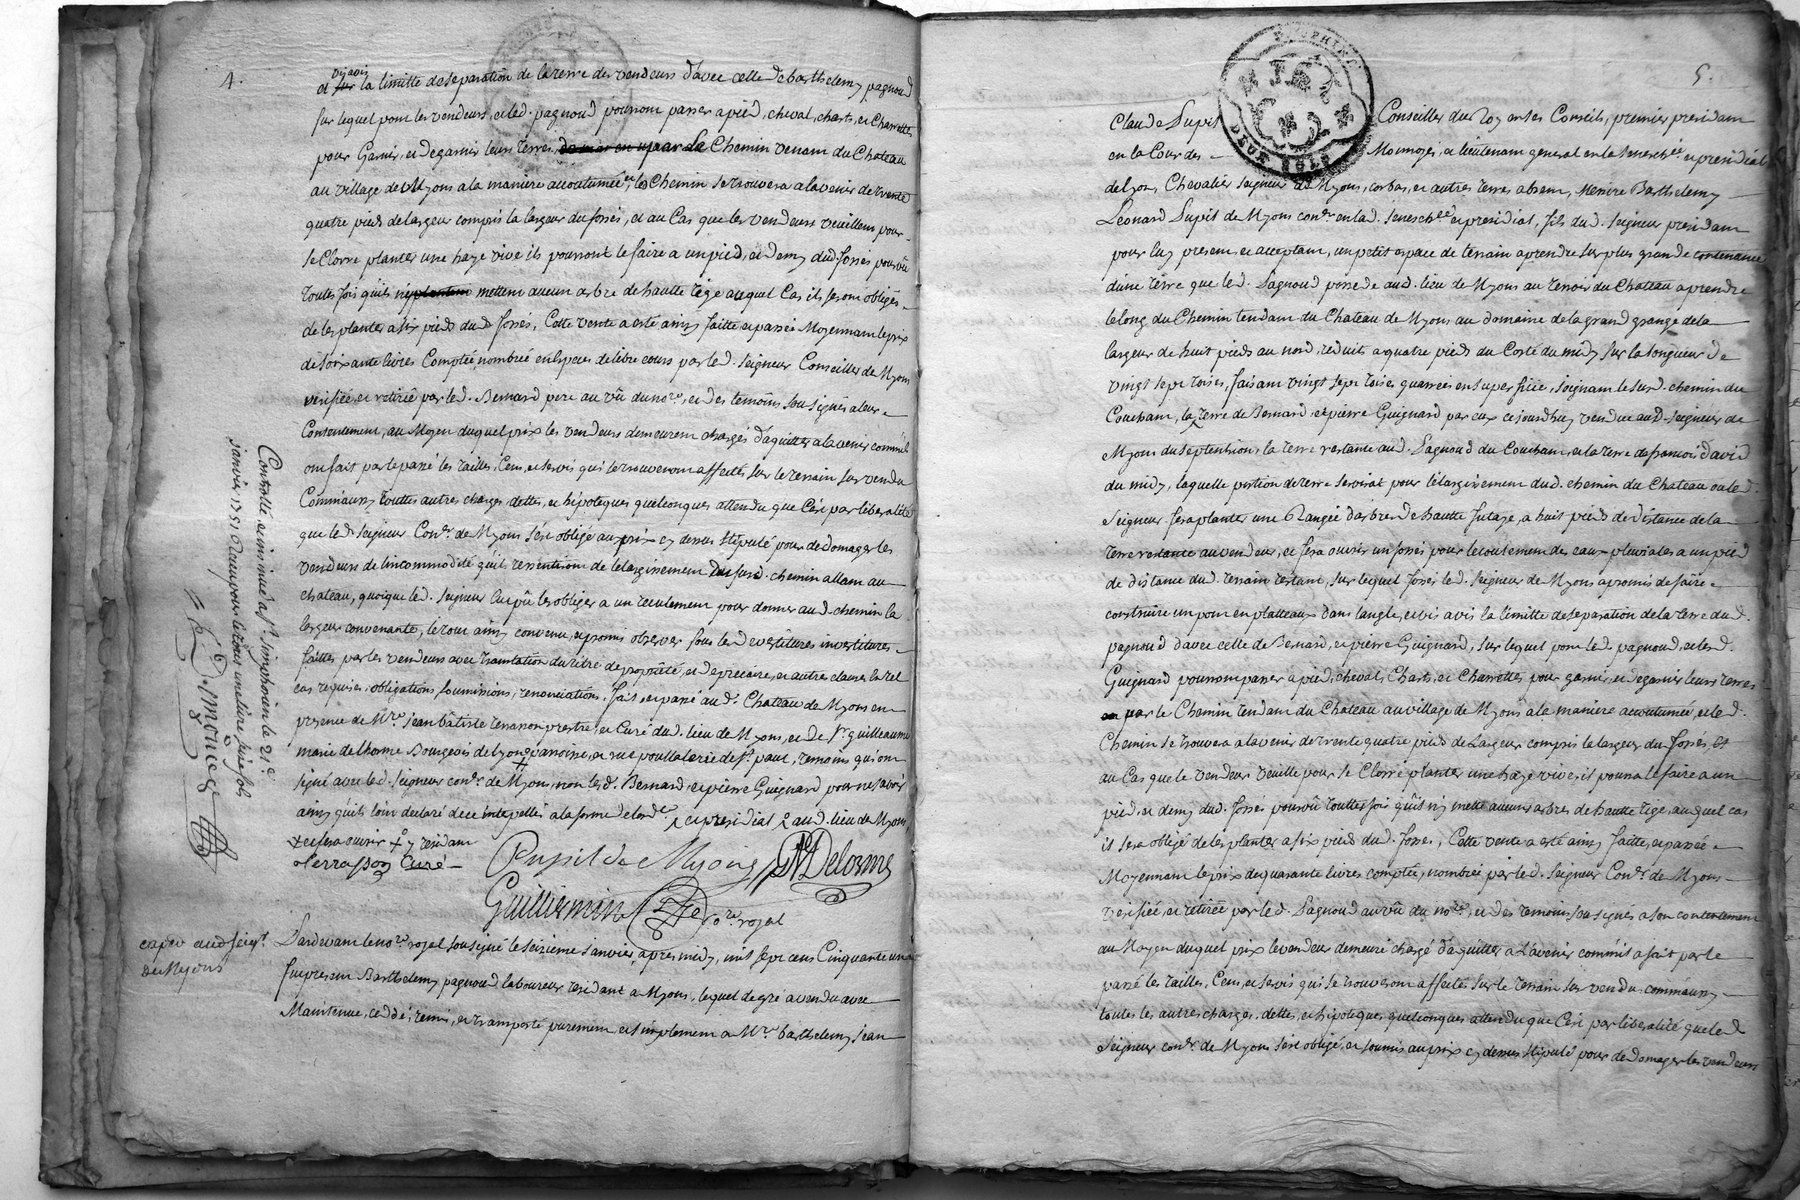 4.
vis avis
et sur la limitte de separation de la terre des vendeurs d'avec celle de barthelemy pagnoud
sur lequel pont les vendeurs, et led. pagnoud pourront passer a pied, cheval, chart, et Charrette
pour Garnir, et degarnir leurs terres, par Le Chemin venant du Chateau
au village de Myons a la maniere accoutumée, le Chemin se trouvera a lavenir de trente
quatre pieds de largeur compris la largeur du fossés, et au Cas que les vendeurs veuillent pour
se Clorre planter une haye vive ils pourront le faire a un pied, et demy dud. fossés pourvû
touttes fois quils n'y mettent aucun arbre de hautte tige auquel Cas ils seront obligés
de les planter a six pieds dud. fossés, Cette vente a esté ainsy faitte, et passée Moyennant le prix
de soixante livres Comptée, nombrée en Especes de libre cours par led. seigneur Conseiller de Myons
verifiée, et retirée par led. Bernard pere au vû du nore, et des temoins sousignés a leur
Consentement, au Moyen duquel prix les vendeurs demeurent chargés d'aquitter a lavenir comme ils
ont fait par le passé les tailles, Cens, et servis qui se trouveront affectés sur le terrain sus vendu
Comm'aussy touttes autres charges, dettes, et hipoteques quelconques attendu que C'est par liberalité
que led. seigneur Conr. de Myons s'est obligé au prix cy dessus stipulé pour dedomager les
vendeurs de lincommodité quils ressentiront de lelargissement du susd. chemin allant au
chateau, quoique led. seigneur Eut pû les obliger a un reculement pour donner aud. chemin la
largeur convenante, le tout ainsy convenu, et promis observer sous les devestitures investitures
faittes par les vendeurs avec translation du titre de proprieté, et de precaire, et autres clauses en tel
cas requises, obligations, soumissions, renonciations. fait, et passé aud. Chateau de Myons en
presence de Mre. jean bâtiste terrasson prestre, et Curé dud. lieu de Myons, et de sr. guillaume
marie delhorme Bourgeois de lyon paroisse, et rue poullalerie de st. paul, temoins qui ont
signé avec led. seigneur conr. de Myons, non lesd. Bernard et pierre Guignard pour ne savoir
ainsy quils l'ont declaré de ce interpellés a la forme de lorde. et presidial aud. lieu de Myons,
+ et fera ouvrir + y residant
Terrasson Curé
Pupil de Myons
GMDelorme
Guillermin
nore. royal
Controllé et insinué a st. simphorien le 21e.
janvier 1751
expedié aud. seigr.
de Myons
Pardevant le nore. royal sousigné le seizieme janvier, apres midy, mil sept cens Cinquante un
fut present Barthelemy pagnoud laboureur residant a Myons, lequel de gré a vendu avec
Maintenue, ceddé, remis, et transporté purement, et simplement a Mre. barthelemy, jean
5.
Claude Pupil Conseiller du Roy en ses Conseils, premier president
en la Cour des Monnoyes, et lieutenant general en la seneschée. et presidial
de lyon, Chevalier seigneur de Myons, corbas, et autres terres absent, Messire Barthelemy
Leonard Pupil de Myons conr. en lad. seneschée. et presidial, fils dud. seigneur president
pour luy present et acceptant, un petit espace de terrain a prendre sur plus grande contenance
d'une terre que led. Pagnoud possede aud. lieu de Myons au terroir du Chateau a prendre
le long du Chemin tendant du Chateau de Myons au domaine de la grand grange de la
largeur de huit pieds au nord, reduits a quatre pieds du Costé du midy sur la longueur de
vingt sept toises, faisant vingt sept toises quarrées en superficie, joignant le susd. chemin du
Couchant, la terre de Bernard et pierre Guignard par eux cejourdhuy vendue aud. seigneur de
Myons du septentrion, la terre restante aud. Pagnoud du Couchant, et la terre de francois david
du midy, laquelle portion de terre servirat pour l'élargissement dud. chemin du Chateau ou led.
seigneur fera planter une Rangée d'arbres de hautte futaye, a huit pieds de distance de la
terre restante au vendeur, et fera ouvrir un fossés pour lecoulement des eaux pluviales a un pied
de distance dud. terrain restant, sur lequel fossés led. seigneur de Myons a promis de faire
construire un pont en platteaux dans langle, et vis avis la limitte de separation de la terre dud.
pagnoud d'avec celle de Bernard, et pierre Guignard, sur lequel pont led. pagnoud, et lesd.
Guignard pourront passer a pied, cheval, Charts, et Charrettes pour garnir, et degarnir leurs terres
par le Chemin tendant du Chateau au village de Myons a la maniere accoutumée, et led.
Chemin se trouvera a lavenir de trente quatre pieds de Largeur compris la largeur du fossés, Et
au Cas que le vendeur veuille pour se Clorre planter une haye vive, il pourra le faire a un
pied, et demy dud. fossés pourvû touttes fois quils n'y mette aucuns arbres de hautte tige, auquel cas
il sera obligé de les planter a six pieds dud. fosses, Cette vente a esté ainsy faitte, et passée
Moyennant le prix de quarante livres comptée, nombrée par led. seigneur Conr. de Myons
verifiée, et retirée par led. Pagnoud au vû du nore., et des temoins sousignés a son contentement
au Moyen duquel prix le vendeur demeure chargé d'aquitter a lavenir comm'il a fait par le
passé les tailles, Cens, et servis qui se trouveront affectés sur le terrain sus vendu comm'aussy
toutes les autres charges, dettes, et hipoteques quelconques attendu que C'est par liberalité que led.
seigneur conr. de Myons s'est obligé, et soumis au prix cy dessus stipulé pour dedomager les vendeurs